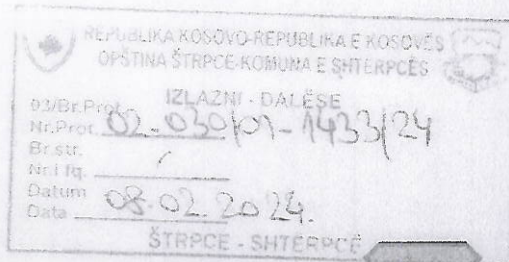 REPUBLIKA KOSOVO-REPUBLIKA E KOSOVËS
OPŠTINA ŠTRPCE-KOMUNA E SHTERPCËS
IZLAZNI - DALËSE
03/Br.Prot.
Nr.Prot. 02-030/01-1433/24
Br.str.
Nr.i fq. /
Datum
Data 08.02.2024.
ŠTRPCE - SHTERPCË